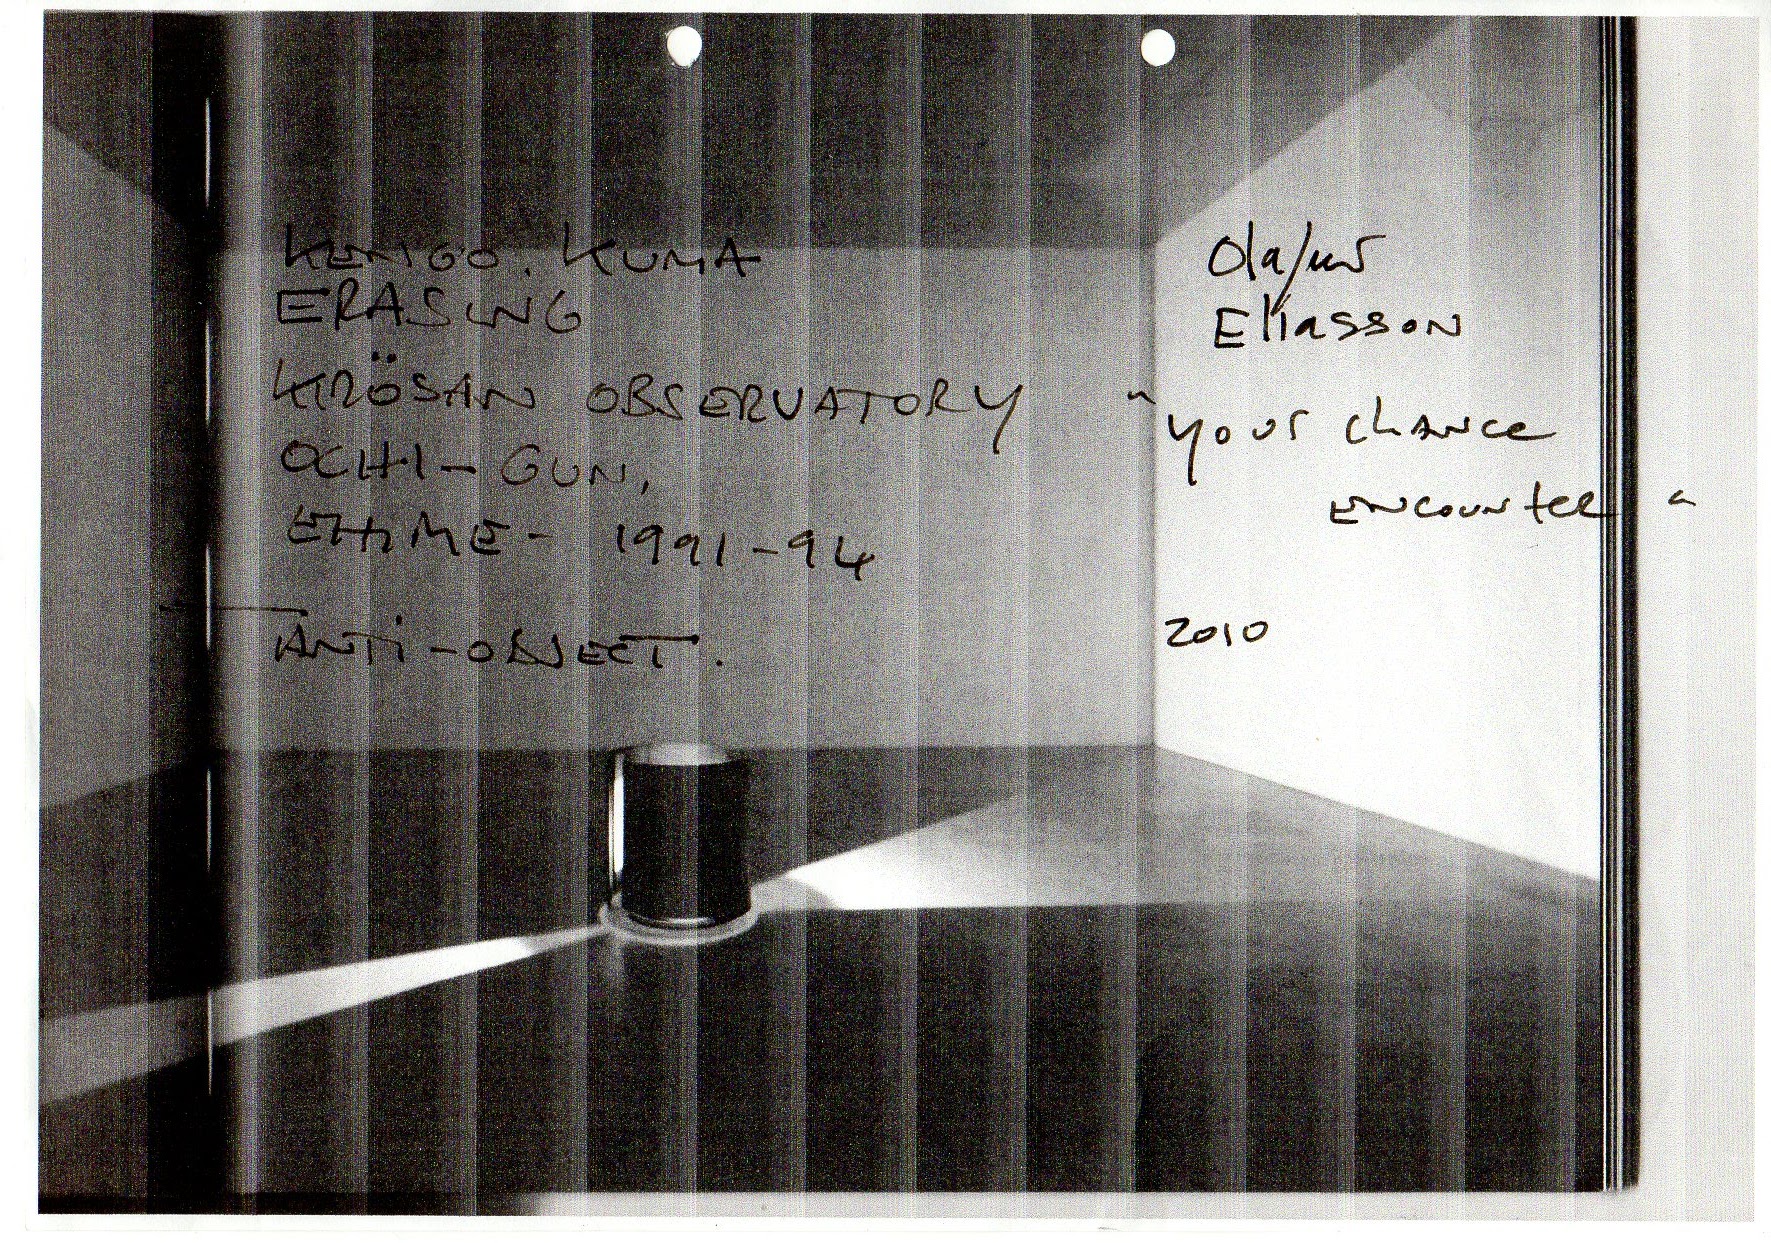 KENGO. KUMA
ERASING
KIRÖSAN OBSERVATORY
OCHI-GUN,
EHIME - 1991-94
ANTI-OBJECT.
Olafur
Eliasson
"your chance
encounter"
2010